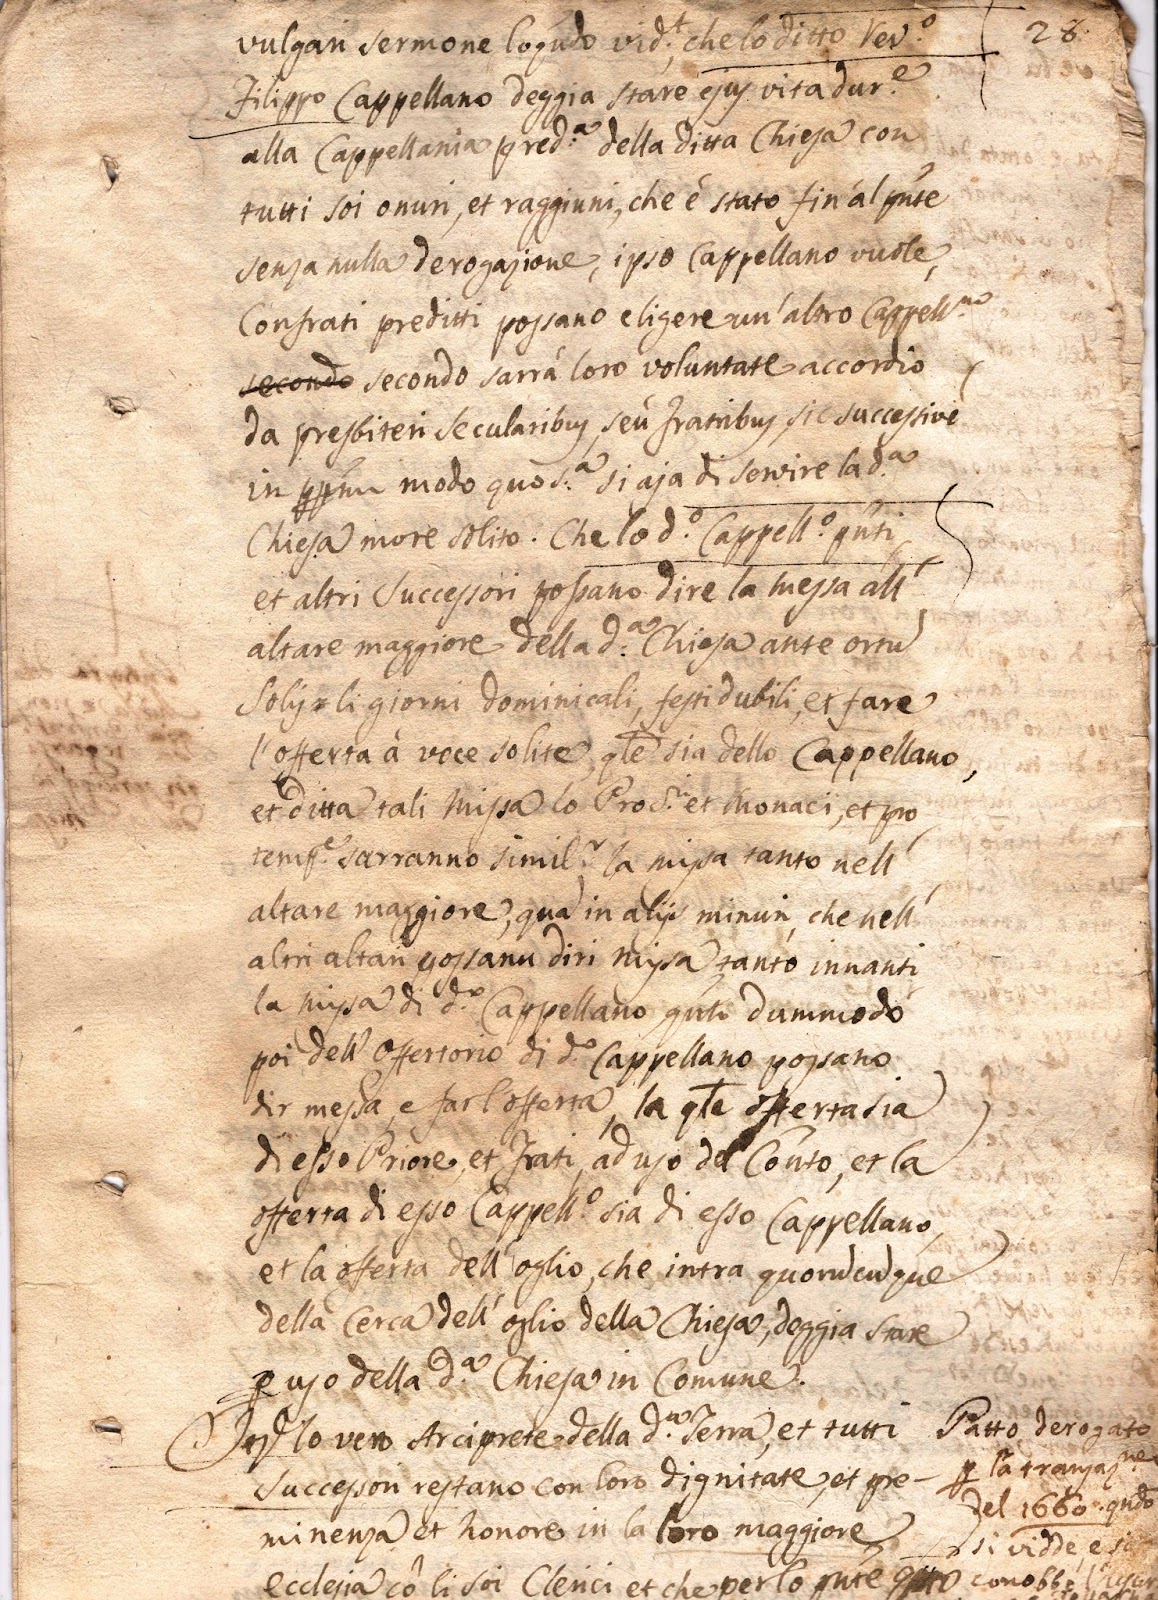 28.
vulgari sermone loqudo vid.t, che lo ditto Ven.o
Filippo Cappellano deggia stare ejus vita dur.e
alla Cappellania pred.a della ditta Chiesa con
tutti soi onuri, et raggiuni, che è stato fin'al pnte
senza nulla derogazione, ipso Cappellano vuole,
Confrati preditti possano eligere un'altro Cappell.no
secondo secondo sarrà loro voluntate accordio
da presbiteri secularibus, seù Fratribus, sic successivè
in modo quo s.a si aja di servire la d.a
Chiesa more solito. Che lo d.o Cappell.o pnti
et altri Successori possano dire la messa all'
altare maggiore della d.a Chiesa ante ortu
Solis li giorni dominicali, festi dubili, et fare
l'offerta à voce solite, qle sia dello Cappellano,
et ditta tali Missa lo Prio.. et Monaci, et pro
temp.e sarranno simil.r la missa tanto nell'
altare maggiore, qua in alijs minuri, che nell'
altri altari possanu diri missa, tanto innanti
la missa di d.o Cappellano pnte dummodo
poi dell'Offertorio di d.o Cappellano possano
dir messa, e far l'offerta, la qle offerta sia
di esso Priore, et Frati, ad uso del Conto, et la
offerta di esso Cappell.o sia di esso Cappellano,
et la offerta dell'oglio, che intra quorucuque
della Cerca dell'oglio della Chiesa, deggia stare
p uso della d.a Chiesa in Comune.
lo ven Arciprete della d.a Terra, et tutti
Successori restano con loro dignitate, et pre-
minenza et honore in la loro maggiore
ecclesia cò li soi Clerici et che per lo pnte
Patto derogato
p la tranzaz.ne
del 1660. qndo
si vidde, e si
conobbe